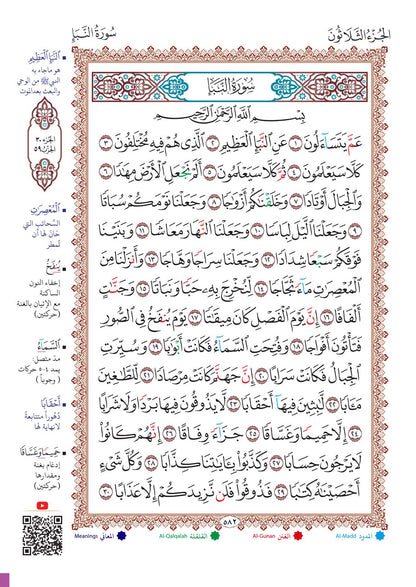 الجزء الثلاثون
سورة النبإ
سُورَةُ النَّبَإِ
بِسْمِ اللَّهِ الرَّحْمَٰنِ الرَّحِيمِ
عَمَّ يَتَسَاءَلُونَ ١ عَنِ النَّبَإِ الْعَظِيمِ ٢ الَّذِي هُمْ فِيهِ مُخْتَلِفُونَ ٣
كَلَّا سَيَعْلَمُونَ ٤ ثُمَّ كَلَّا سَيَعْلَمُونَ ٥ أَلَمْ نَجْعَلِ الْأَرْضَ مِهَادًا ٦
وَالْجِبَالَ أَوْتَادًا ٧ وَخَلَقْنَاكُمْ أَزْوَاجًا ٨ وَجَعَلْنَا نَوْمَكُمْ سُبَاتًا
٩ وَجَعَلْنَا اللَّيْلَ لِبَاسًا ١٠ وَجَعَلْنَا النَّهَارَ مَعَاشًا ١١ وَبَنَيْنَا
فَوْقَكُمْ سَبْعًا شِدَادًا ١٢ وَجَعَلْنَا سِرَاجًا وَهَّاجًا ١٣ وَأَنزَلْنَا مِنَ
الْمُعْصِرَاتِ مَاءً ثَجَّاجًا ١٤ لِّنُخْرِجَ بِهِ حَبًّا وَنَبَاتًا ١٥ وَجَنَّاتٍ
أَلْفَافًا ١٦ إِنَّ يَوْمَ الْفَصْلِ كَانَ مِيقَاتًا ١٧ يَوْمَ يُنفَخُ فِي الصُّورِ
فَتَأْتُونَ أَفْوَاجًا ١٨ وَفُتِحَتِ السَّمَاءُ فَكَانَتْ أَبْوَابًا ١٩ وَسُيِّرَتِ
الْجِبَالُ فَكَانَتْ سَرَابًا ٢٠ إِنَّ جَهَنَّمَ كَانَتْ مِرْصَادًا ٢١ لِّلطَّاغِينَ
مَآبًا ٢٢ لَّابِثِينَ فِيهَا أَحْقَابًا ٢٣ لَّا يَذُوقُونَ فِيهَا بَرْدًا وَلَا شَرَابًا
٢٤ إِلَّا حَمِيمًا وَغَسَّاقًا ٢٥ جَزَاءً وِفَاقًا ٢٦ إِنَّهُمْ كَانُوا
لَا يَرْجُونَ حِسَابًا ٢٧ وَكَذَّبُوا بِآيَاتِنَا كِذَّابًا ٢٨ وَكُلَّ شَيْءٍ
أَحْصَيْنَاهُ كِتَابًا ٢٩ فَذُوقُوا فَلَن نَّزِيدَكُمْ إِلَّا عَذَابًا ٣٠
٥٨٢
النَّبَإِ الْعَظِيمِ
هو ما جاء به
النبي ﷺ من الوحي
والبعث بعد الموت
الجزء ٣٠
الحزب ٥٩
الْمُعْصِرَاتِ
السحائب التي
حان لها أن
تمطر
يُنفَخُ
إخفاء النون
الساكنة
مع الإتيان بالغنة
(حركتين)
السَّمَاءُ
مد متصل:
يمد ٤-٥ حركات
(وجوبا)
أَحْقَابًا
دهوراً متتابعة
لا نهاية لها
حَمِيمًا وَغَسَّاقًا
إدغام بغنة
ومقدارها
(حركتين)
المدود Al-Madd
الغنن Al-Gunan
القلقلة Al-Qalqalah
المعاني Meanings